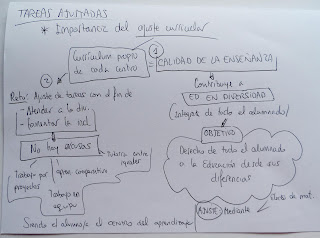 TAREAS AJUSTADAS
* Importancia del ajuste curricular
Currículum propio
de cada centro
= ① CALIDAD DE LA ENSEÑANZA
②
Contribuye a
Reto: Ajuste de tareas con el fin de
- Atender a la div.
- fomentar la incl.
ED EN DIVERSIDAD
(Integrar de todo el alumnado)
No hay excusas
OBJETIVO
Derecho de todo el alumnado
a la Educación desde sus
diferencias
Trabajo por
proyectos
cooperativo
Tutoría entre
iguales
Trabajo en
equipo
AJUSTE Mediante
de mat.
Siendo el alumno/a el centro del aprendizaje